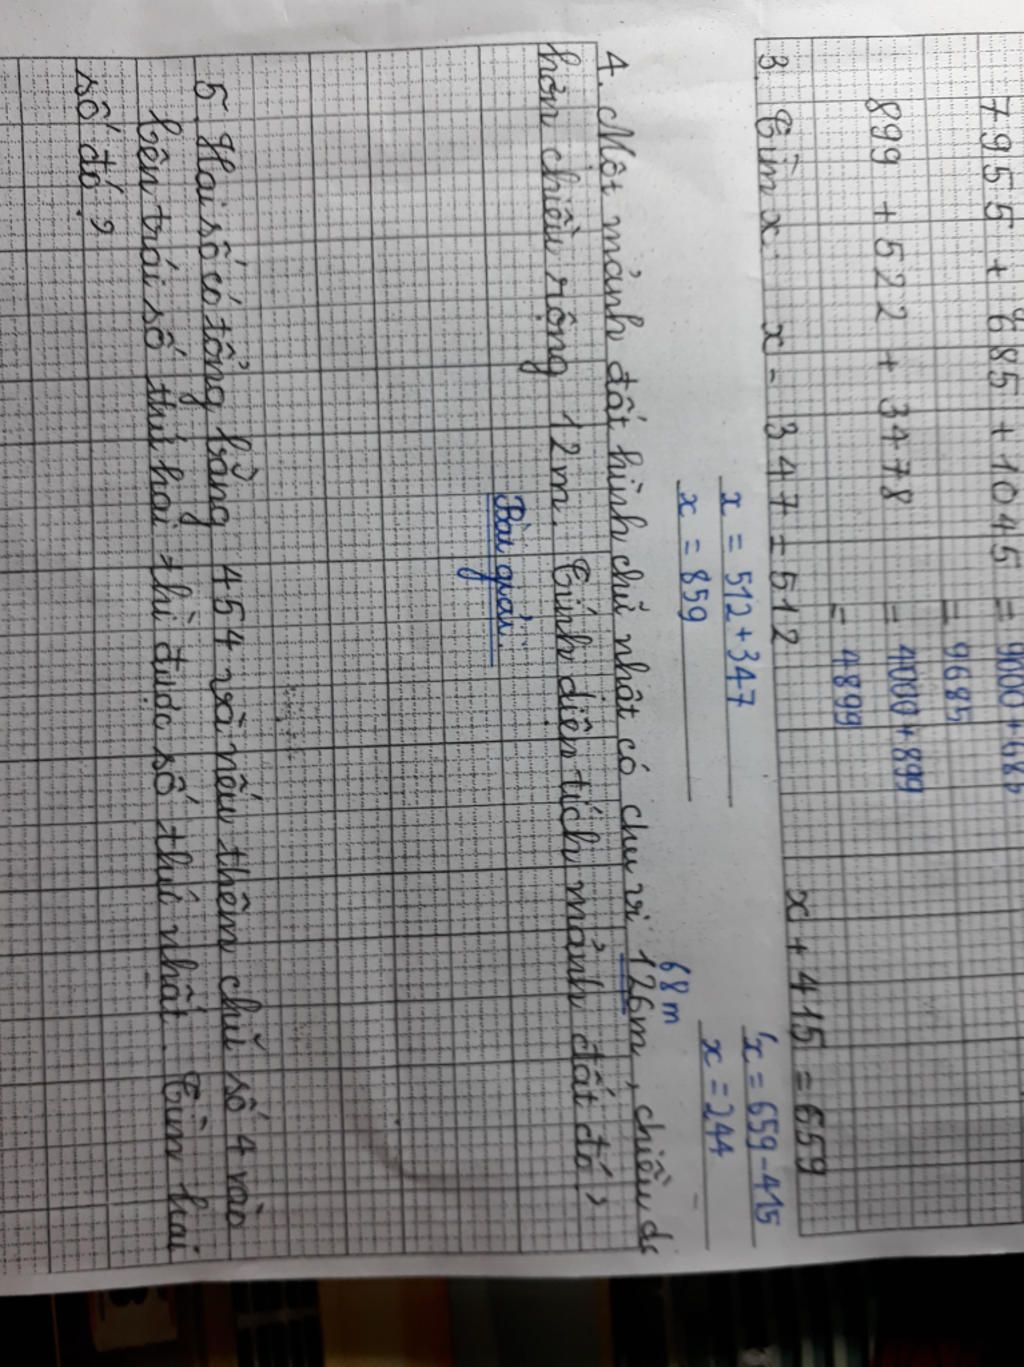 7955 + 685 + 1045 = 9000 + 685
= 9685
899 + 522 + 3478 = 4000 + 899
= 4899
3. Tìm x: x - 347 = 512 x + 415 = 659
x = 512 + 347 x = 659 - 415
x = 859 x = 244
68 m
4. Một mảnh đất hình chữ nhật có chu vi 126m, chiều
hơn chiều rộng 12m. Tính diện tích mảnh đất đó?
Bài giải:
5. Hai số có tổng bằng 454 và nếu thêm chữ số 4 vào
bên trái số thứ hai thì được số thứ nhất. Tìm hai
số đó?